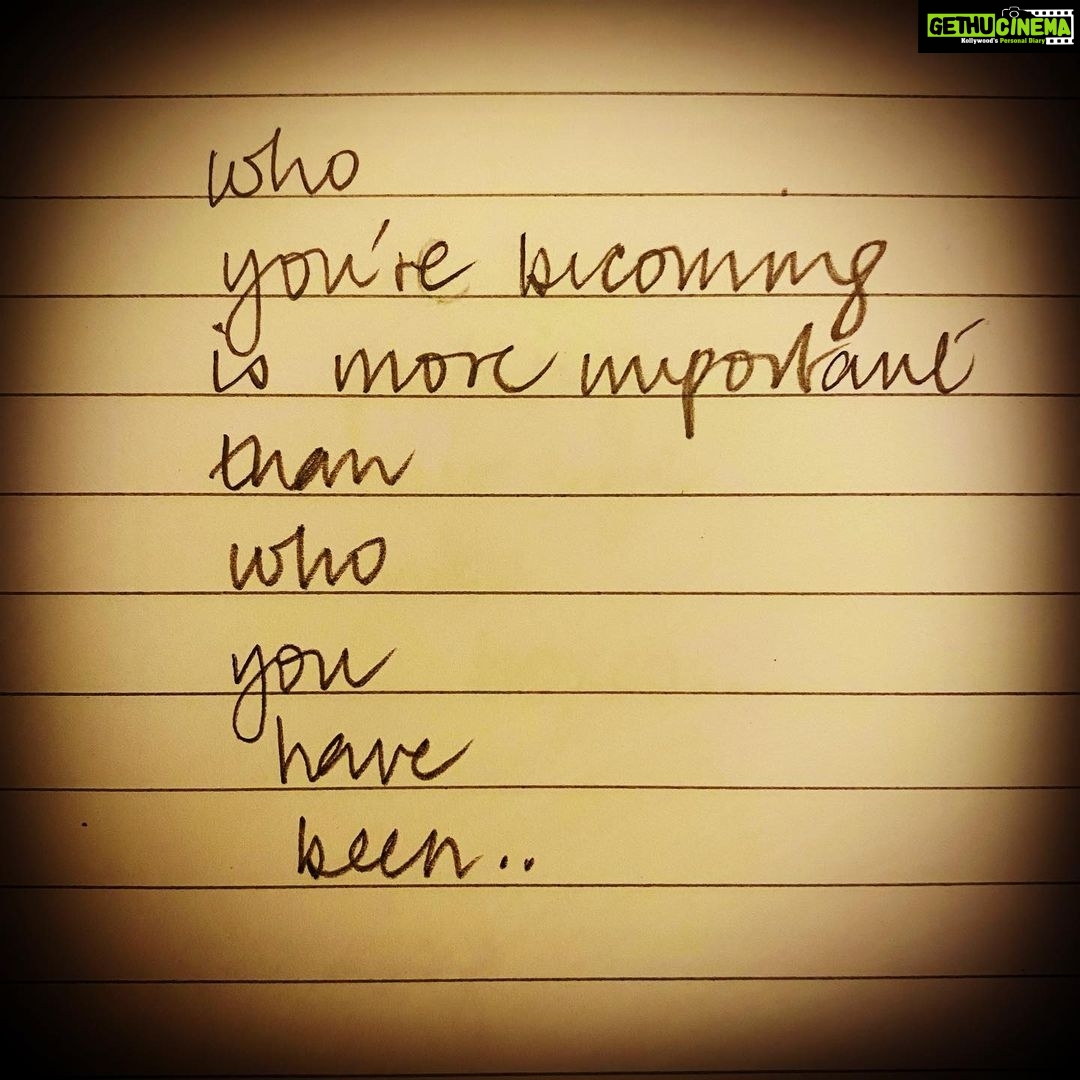 GETHUCINEMA
Kollywood's Personal Diary
who
you're becoming
is more important
than
who
you
have
been..